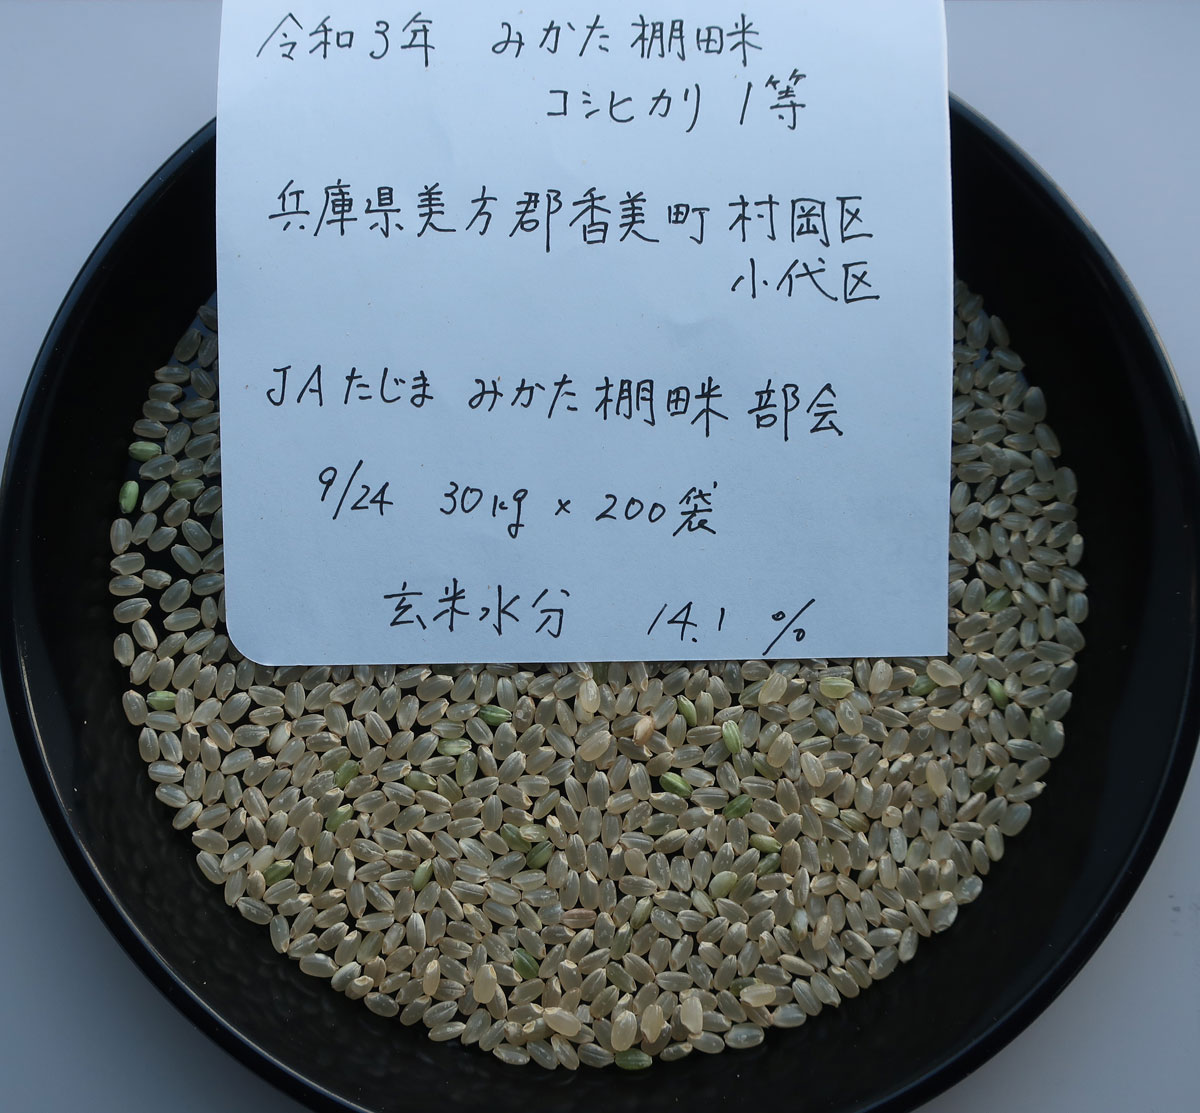 令和3年 みかた棚田米
コシヒカリ 1等
兵庫県美方郡香美町村岡区
小代区
JAたじま みかた棚田米部会
9/24 30kg × 200袋
玄米水分 14.1 %